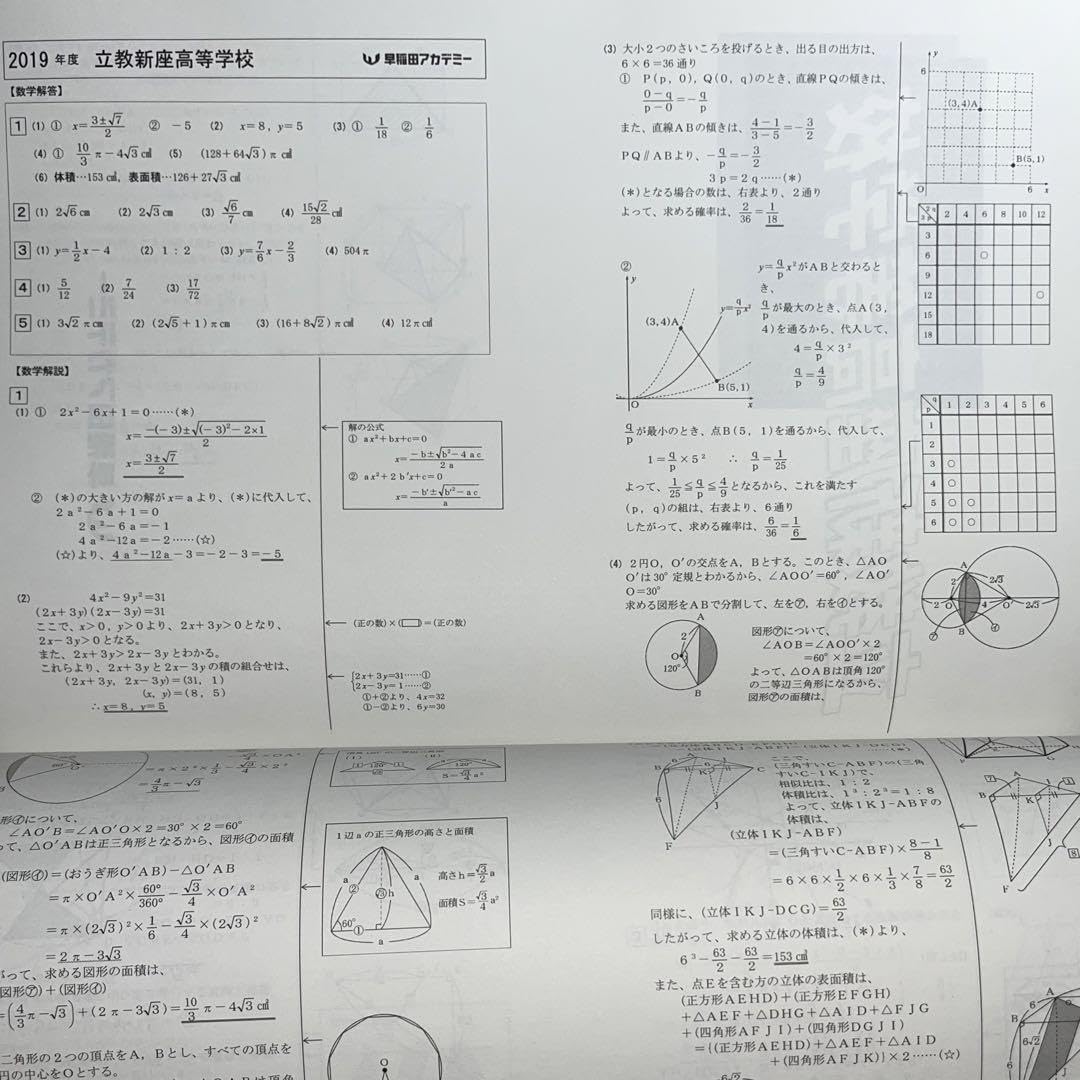 2019 年度 立教新座高等学校 早稲田アカデミー
【数学解答】
1 (1) ① x=3±√7/2 ② −5 (2) x=8, y=5 (3) ① 1/18 ② 1/6
(4) ① 10/3 π−4√3 cm² (5) (128+64√3)π cm²
(6) 体積…153 cm³, 表面積…126+27√3 cm²
2 (1) 2√6 cm (2) 2√3 cm (3) √6/7 cm (4) 15√2/28 cm²
3 (1) y=1/2 x−4 (2) 1:2 (3) y=7/6 x−2/3 (4) 504π
4 (1) 5/12 (2) 7/24 (3) 17/72
5 (1) 3√2 π cm (2) (2√5+1)π cm (3) (16+8√2)π cm² (4) 12π cm²
【数学解説】
1
(1) ① 2x²−6x+1=0……(*)
x=−(−3)±√(−3)²−2×1/2
x=3±√7/2
解の公式
① ax²+bx+c=0
x=−b±√b²−4ac/2a
② ax²+2b'x+c=0
x=−b'±√b'²−ac/a
② (*)の大きい方の解がx=aより、(*)に代入して、
2a²−6a+1=0
2a²−6a=−1
4a²−12a=−2……(☆)
(☆)より、4a²−12a−3=−2−3=−5
(2) 4x²−9y²=31
(2x+3y)(2x−3y)=31
ここで、x>0, y>0より、2x+3y>0となり、
2x−3y>0となる。
また、2x+3y>2x−3yとわかる。
これらより、2x+3yと2x−3yの積の組合せは、
(2x+3y, 2x−3y)=(31, 1)
(x, y)=(8, 5)
∴x=8, y=5
(正の数)×(□)=(正の数)
2x+3y=31……①
2x−3y=1……②
①+②より、4x=32
①−②より、6y=30
(3) 大小2つのさいころを投げるとき、出る目の出方は、
6×6=36通り
① P(p, 0), Q(0, q)のとき、直線PQの傾きは、
0−q/p−0=−q/p
また、直線ABの傾きは、4−1/3−5=−3/2
PQ∥ABより、−q/p=−3/2
3p=2q……(*)
(*)となる場合の数は、右表より、2通り
よって、求める確率は、2/36=1/18
y
6
(3,4)A
B(5,1)
O 6 x
2q 3p 2 4 6 8 10 12
3
6 ○
9
12 ○
15
18
②
y
(3,4)A
y=q/p x²
B(5,1)
O x
y=q/p x²がABと交わると
き、
q/pが最大のとき、点A(3,
4)を通るから、代入して、
4=q/p×3²
q/p=4/9
q/pが最小のとき、点B(5, 1)を通るから、代入して、
1=q/p×5² ∴ q/p=1/25
よって、1/25≦q/p≦4/9となるから、これを満たす
(p, q)の組は、右表より、6通り
したがって、求める確率は、6/36=1/6
q p 1 2 3 4 5 6
1
2
3 ○
4 ○
5 ○ ○
6 ○ ○
(4) 2円O, O'の交点をA, Bとする。このとき、△AO
O'は30°定規とわかるから、∠AOO'=60°, ∠AO'
O=30°
求める図形をABで分割して、左を㋐, 右を㋑とする。
A
2
O
120°
B
図形㋐について、
∠AOB=∠AOO'×2
=60°×2=120°
よって、△OABは頂角120°
の二等辺三角形になるから、
図形㋐の面積は、
A
2 2√3
2 O 4 O' 2√3
B
㋐ ㋑
=4/3 π−√3
形㋑について、
∠AO'B=∠AO'O×2=30°×2=60°
って、△O'ABは正三角形となるから、図形㋑の面積
(図形㋑)=(おうぎ形O'AB)−△O'AB
=π×O'A²×60°/360°−√3/4×O'A²
=π×(2√3)²×1/6−√3/4×(2√3)²
=2π−3√3
がって、求める図形の面積は、
図形㋐)+(図形㋑)
=(4/3 π−√3)+(2π−3√3)=10/3 π−4√3 cm²
二角形の2つの頂点をA, Bとし、すべての頂点を
円の中心をOとする。
120°
S=√3/4 a²
1辺aの正三角形の高さと面積
a a
② √3 h
60° ①
a
高さh=√3/2 a
面積S=√3/4 a²
O
B 6 K C
6 J
F
ここで、
(三角すいC-ABF)∽(三角
すいC-IKJ)で、
相似比は、1:2
体積比は、1³:2³=1:8
よって、立体IKJ-ABFの
体積は、
(立体IKJ-ABF)
=(三角すいC-ABF)×8−1/8
=6×6×1/2×6×1/3×7/8=63/2
同様に、(立体IKJ-DCG)=63/2
したがって、求める立体の体積は、(*)より、
6³−63/2−63/2=153 cm³
また、点Eを含む方の立体の表面積は、
(正方形AEHD)+(正方形EFGH)
+△AEF+△DHG+△AID+△FJG
+(四角形AFJI)+(四角形DGJI)
={(正方形AEHD)+△AEF+△AID
+(四角形AFJK)}×2……(☆)
7 A
B K
F
8
A
6
6√2
B
J